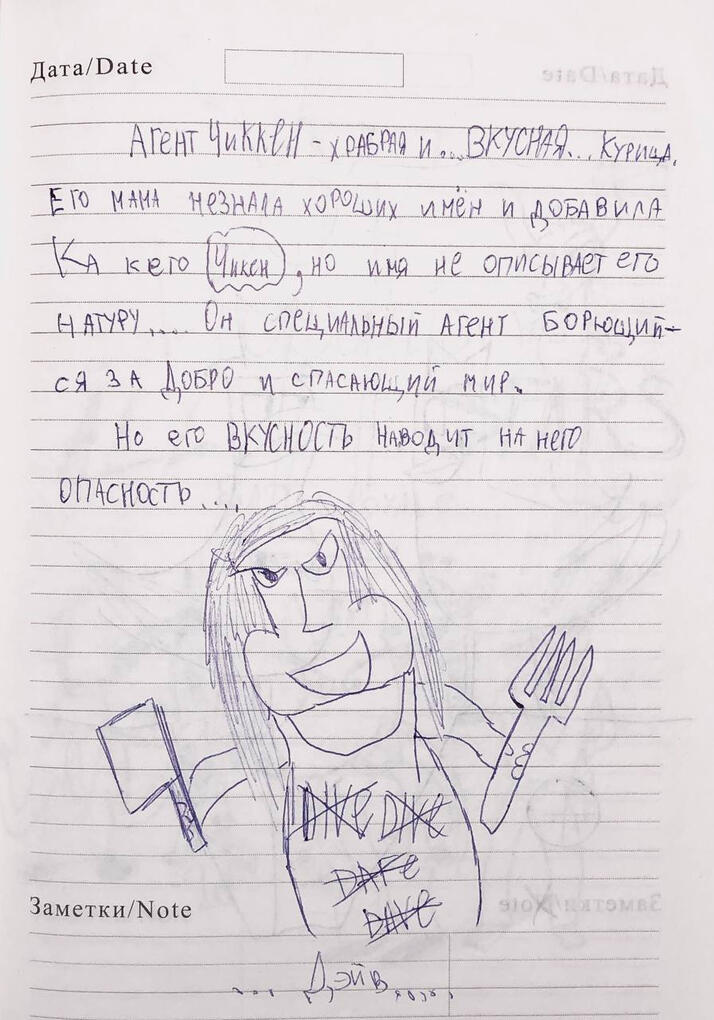 Дата/Date
Агент Чиккен - храбрая и...ВКУСНАЯ... курица.
Его мама незнала хороших имён и добавила
Ка к его Чикен, но имя не описывает его
натуру.... Он специальный агент борющий-
ся за Добро и спасающий мир.
Но его ВКУСНОСТЬ наводит на него
опасность....
DIVE DIVE
DAFE
DAVE
Заметки/Note
... Дэйв.....